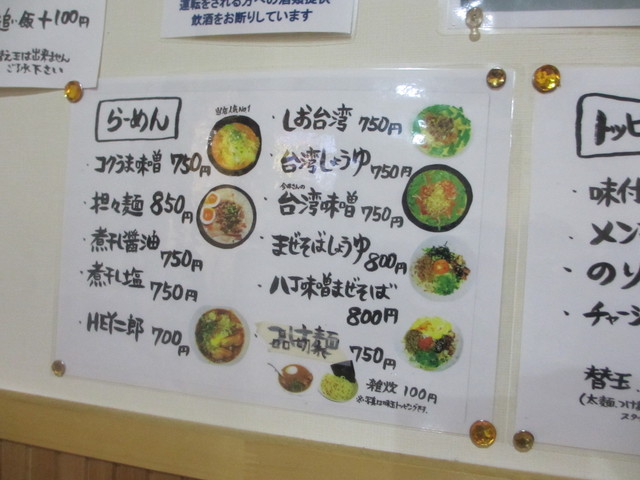 追い飯+100円
替え玉は出来ません
ご了承下さい
運転をされる方への酒類提供
飲酒をお断りしています
らーめん
当店人気No1
・コクうま味噌 750円
・担々麺 850円
・煮干し醤油
750円
・煮干し塩
750円
・HEY二郎 700円
・しお台湾 750円
・台湾しょうゆ 750円
・台湾味噌 750円
・まぜそばしょうゆ
800円
・八丁味噌まぜそば
800円
750円
雑炊 100円
トッピ
・味付
・メン
・のり
・チャー
替玉
(太麺、つけ